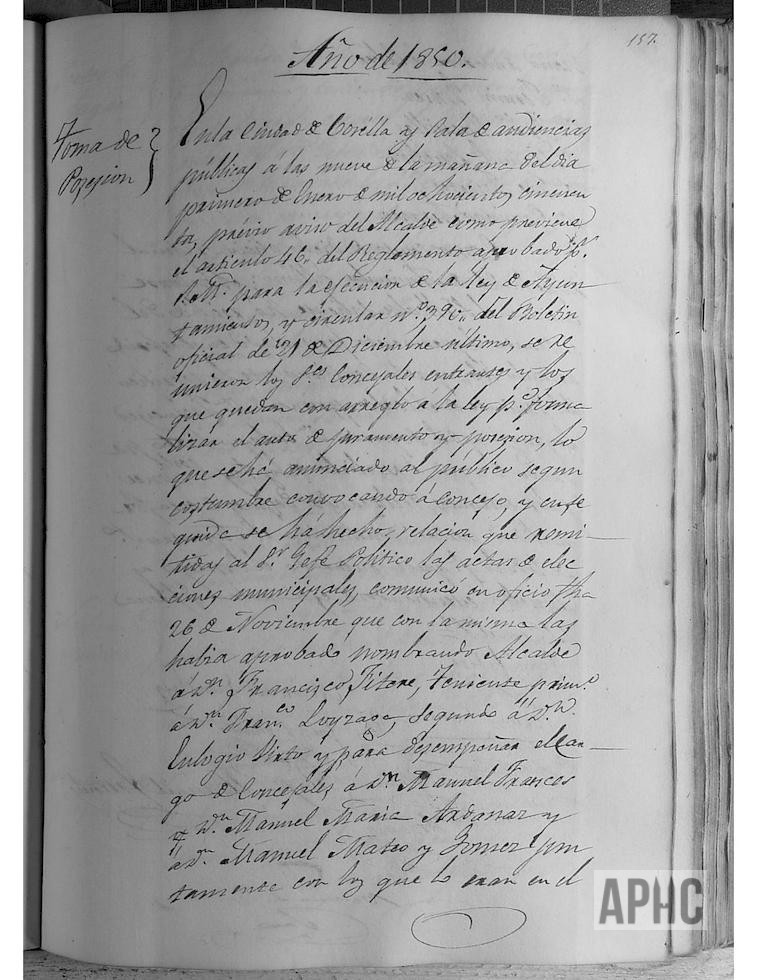 157.
Año de 1850.
Toma de
Posesion
En la Ciudad de Corella y Sala de audiencias
públicas á las nueve de la mañana del dia
primero de Enero de mil ochocientos cincuen
ta, prévio aviso del Alcalde como previene
el articulo 46,, del Reglamento aprobado pr.
S.M. para la ejecucion de la Ley de Ayun
tamientos, y circular nº. 390,, del Boletin
oficial de 21 de Diciembre último, se re
unieron los Sres Concejales entrantes y los
que quedan con arreglo a la ley pa. forma
lizar el auto de juramento y posesion, lo
que se há anunciado al público segun
costumbre convocando á concejo, y en se
guida se há hecho relacion que remi—
tidas al Sr. Gefe Politico las actas de elec
ciones municipales, comunicó en oficio fha
26 de Noviembre que con la misma las
habia aprobado nombrando Alcalde
á Dn. Francisco Fitere, Teniente primo.
á Dn. Franco. Loyzaga, segundo á Dn.
Eulogio Virto y para desempeñar el car—
go de Concejales á Dn. Manuel Frances
á Dn. Manuel Maria Ardanaz y
á Dn. Manuel Mateo y Gomez jun
tamente con los que lo eran en el
APHC